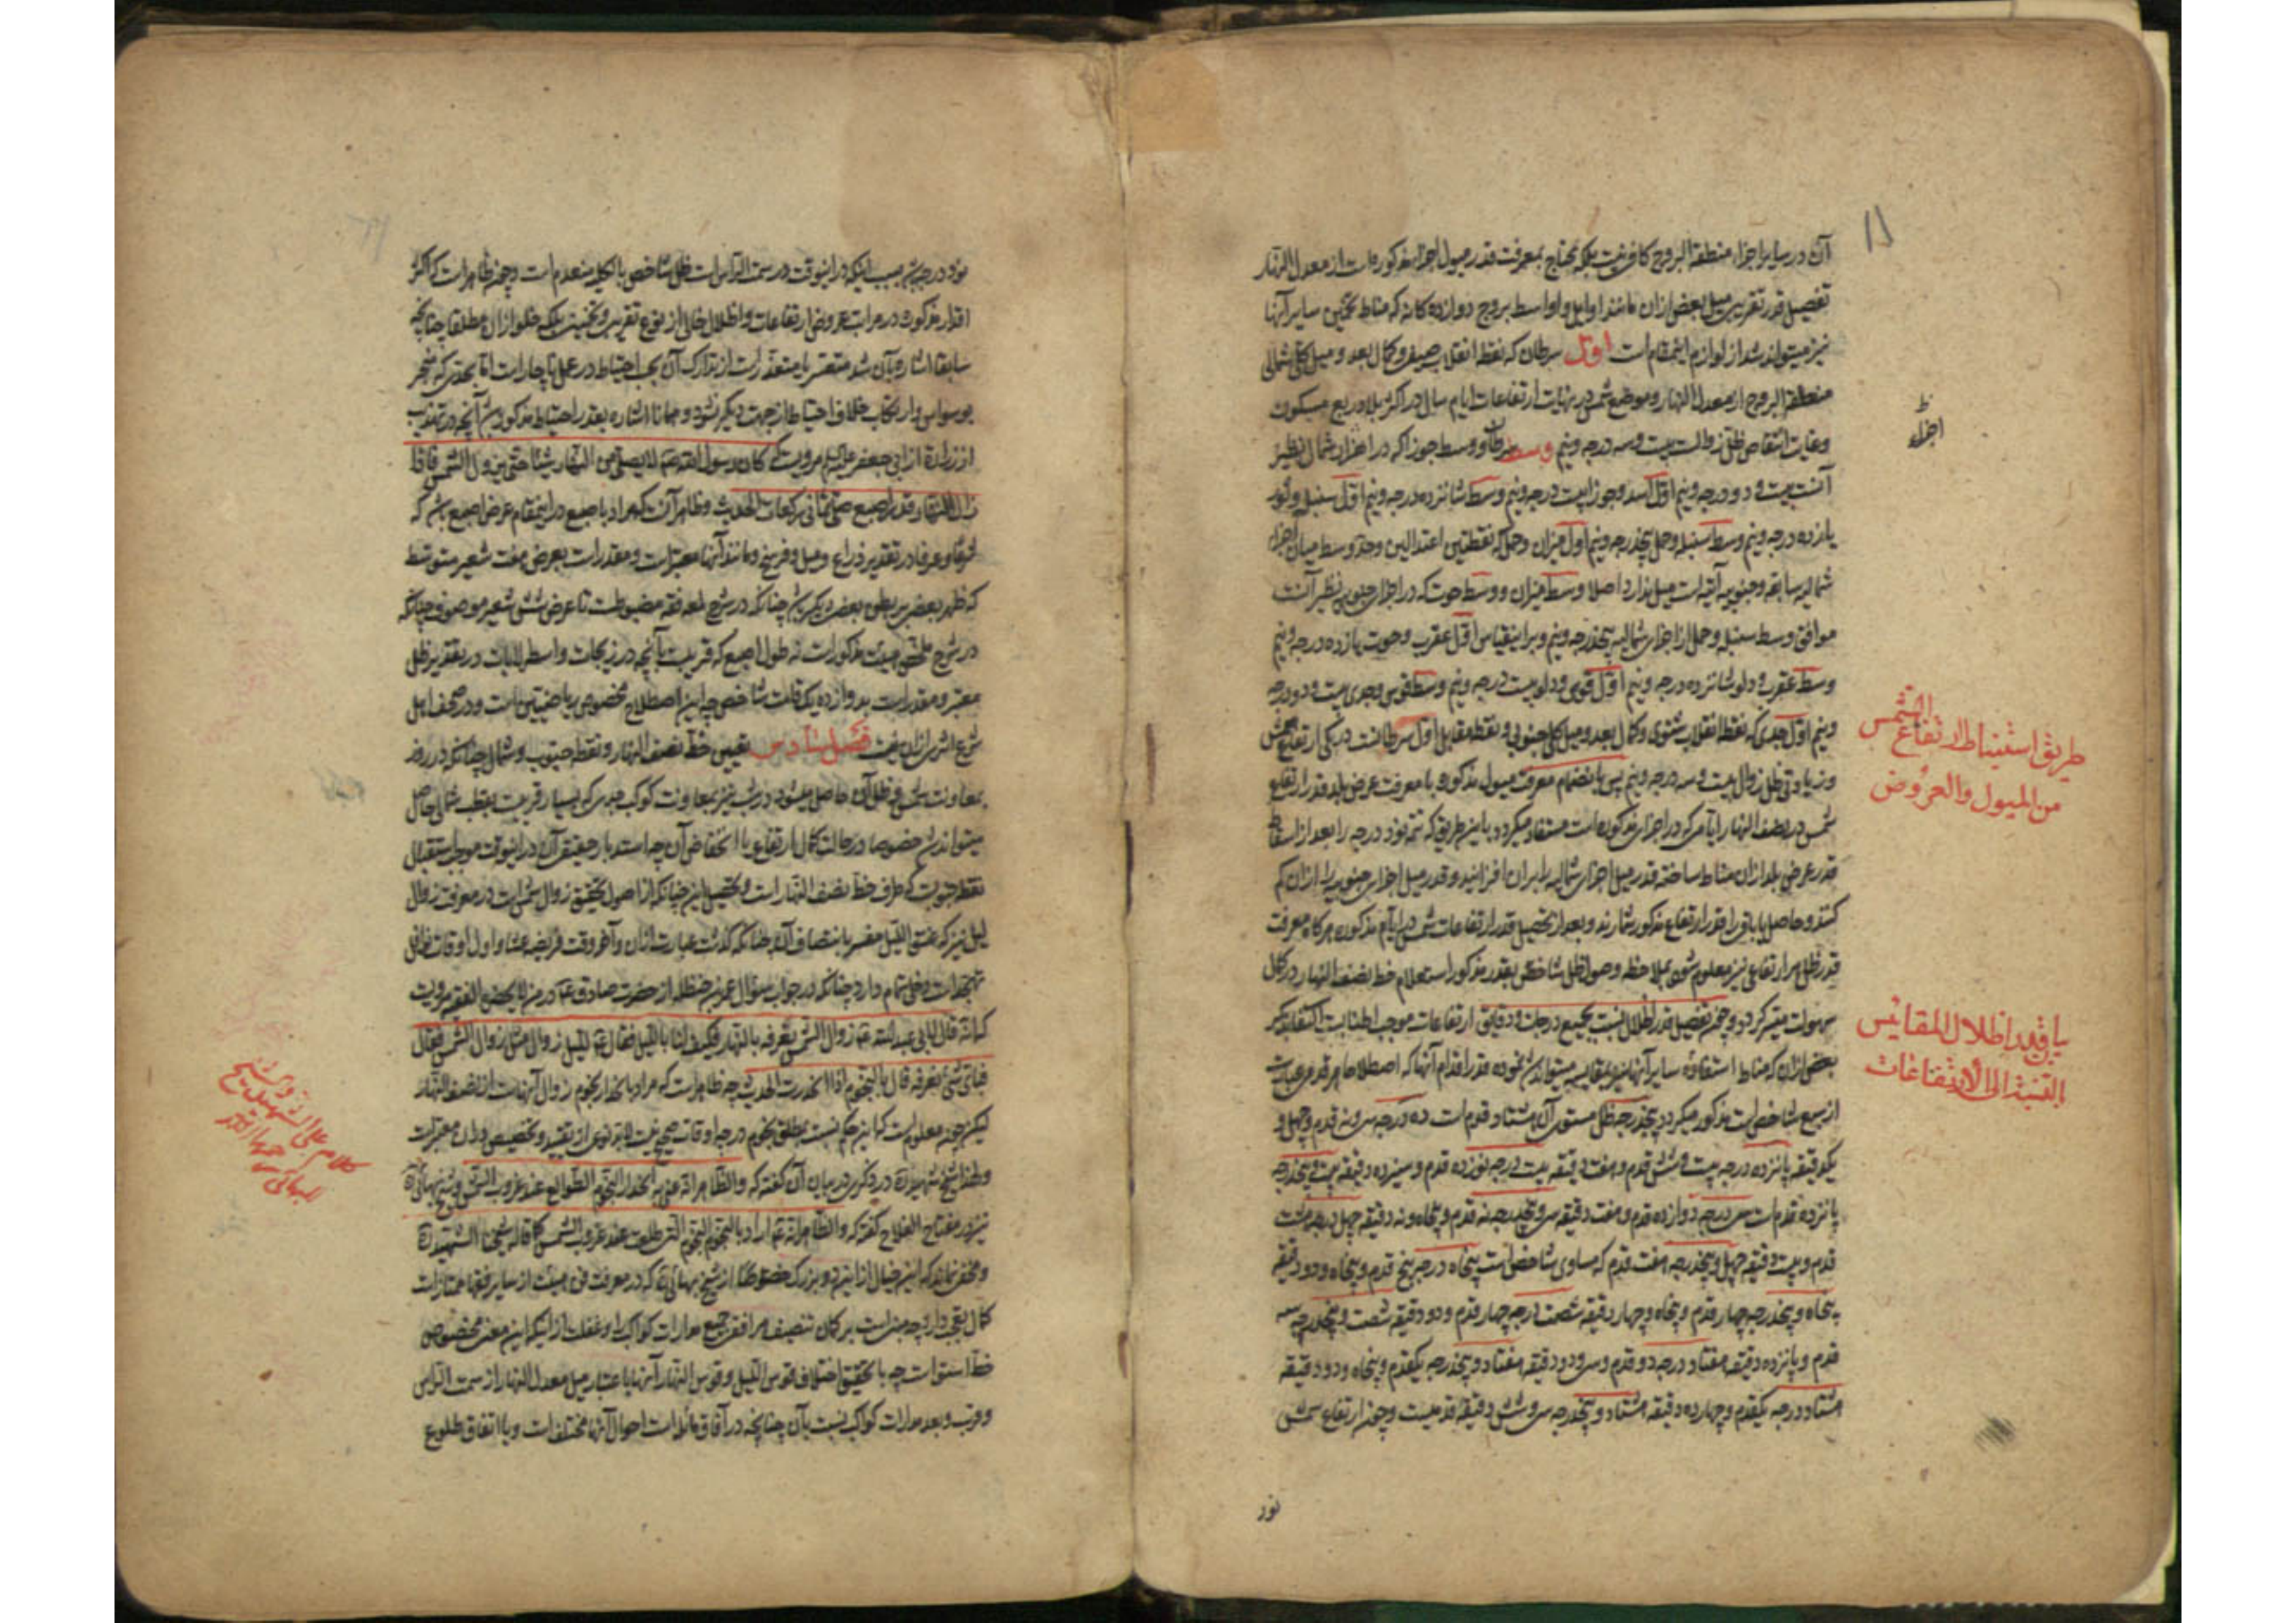 آن در سایر اجزاء منطقة البروج کافی نیست بلکه محتاج بمعرفت قدر میول اجزاء مذکوره است از معدل النهار
تفصیل قدر تقریبی میل بعض ازان مانند اوایل و اواسط بروج دوازده کانه که مناط تخمین سایر آنها
نیز میتواند شد از لوازم اینمقام است اول سرطان که نقطه انقلاب صیفی و کمال بعد و میل کلی شمالی
منطقة البروج از معدل النهار و موضع شمس در نهایت ارتفاعات ایام سال در اکثر بلاد ربع مسکون
و غایت انتقاص ظل زوالست بیست و سه درجه و نیم وسط سرطان و وسط جوزا که در اجزاء شمال نظیر
آنست بیست و دو درجه و نیم اول اسد و جوزا بیست درجه و نیم وسط شانزده درجه و نیم اول سنبله و ثور
یازده درجه و نیم وسط سنبله و حمل پنجدرجه و نیم اول میزان و حمل که نقطتین اعتدالین و حد وسط میان اجزاء
شمالیه سابقه و جنوبیه آتیه است میل ندارد اصلا وسط میزان و وسط حوت که در اجزاء جنوبی نظیر آنست
موافق وسط سنبله و حمل از اجزاء شمالیه پنجدرجه و نیم و بر اینقیاس اول عقرب و حوت یازده درجه و نیم
وسط عقرب و دلو شانزده درجه و نیم اول قوس و دلو بیست درجه و نیم وسط قوس و جدی بیست و دو درجه
و نیم اول جدی که نقطه انقلاب شتوی و کمال بعد و میل کلی جنوبی و نقطه مقابل اول سرطانست در کمی ارتفاع شمس
و زیادتی ظل زوال بیست و سه درجه و نیم پس بانضمام معرفت میول مذکوره با معرفت عرض بلد قدر ارتفاع
شمس در نصف النهار ایامی که در اجزاء مذکوره است مستفاد میکردد باین طریق که تتمه نود درجه را بعد از اسقاط
قدر عرض بلد ازان مناط ساخته قدر میل اجزاء شمالیه را بران افزایند و قدر میل اجزاء جنوبیه را ازان کم
کنند و حاصل یا باقی را قدر ارتفاع مذکور شمارند و بعد از تحصیل قدر ارتفاعات شمس در ایام مذکوره هر کاه معرفت
قدر ظل هر ارتفاعی نیز معلوم شود بملاحظه وصول ظل شاخص بقدر مذکور استعلام خط نصف النهار در کمال
سهولت میسر کردد و چون تفصیل قدر اظلال نسبت بجمیع درجات و دقایق ارتفاعات موجب اطنابست اکتفا بذکر
بعضی ازان که مناط استفاده سایر آنها نیز بمقایسه میتواند شد نموده قدر اقدام آنها که اصطلاحا هر قدم عبارت
از سبع شاخص است مذکور میکردد پنجدرجه ظل مستوی آن هشتاد قدم است ده درجه سی و نه قدم و چهل و
یکدقیقه پانزده درجه بیست و شش قدم و هفت دقیقه بیست درجه نوزده قدم و سیزده دقیقه بیست و پنجدرجه
پانزده قدم است سی درجه دوازده قدم و هفت دقیقه سی و پنجدرجه نه قدم و پنجاه و نه دقیقه چهل درجه هشت
قدم و بیست دقیقه چهل و پنجدرجه هفت قدم که مساوی شاخص است پنجاه درجه پنج قدم و پنجاه و دو دقیقه
پنجاه و پنجدرجه چهار قدم و پنجاه و چهار دقیقه شصت درجه چهار قدم و دو دقیقه شصت و پنجدرجه سه
قدم و پانزده دقیقه هفتاد درجه دو قدم و سی و دو دقیقه هفتاد و پنجدرجه یکقدم و پنجاه و دو دقیقه
هشتاد درجه یکقدم و چهارده دقیقه هشتاد و پنجدرجه سی و شش دقیقه قدمیست و چون ارتفاع شمس
نود
اجزاء
طریق استنباط ارتفاع الشمس
من المیول والعروض
اظلال المقائیس
الی الارتفاعات
نود درجه بسبب اینکه در اینوقت در سمت الراس است ظل شاخص بالکلیه منعدم است و چون ظاهر است که اکثر
اقدار مذکوره در مراتب عروض و ارتفاعات و اظلال خالی از نوع تقریبی و تخمینی بلکه خلو ازان مطلقا چنانچه
سابقا اشاره بآن شد متعسر یا متعذر است از تدارک آن بحسب احتیاط در عمل ناچار است اما بحدی که منجر
بوسواس و ارتکاب خلاف احتیاط از جهت دیکر نشود و همانا اشاره بقدر احتیاط مذکور باشد آنچه در تهذیب
از زراره از ابی جعفر علیه السلام مرویست که کان رسول الله لایصلی من النهار شیئا حتی یزول الشمس فاذا
زال النهار قدر اصبع صلی ثمانی رکعات الحدیث و ظاهر آنست که مراد باصبع در اینمقام عرض اصبع باشد که
شرعا و عرفا در تقدیر ذراع و میل و فرسخ و مانند آنها معتبر است و مقدر است بعرض هفت شعیر متوسط
که ظهر بعضی بر بطن بعضی دیکر باشد چنانکه در شرح لمعه فقه مضبوطست تا عرض شش شعیر موصوف چنانکه
در شرح ملخص هیئت مذکور است نه طول اصبع که قریبست بآنچه در زیجات و اسطرلابات در تقدیر ظل
معتبر و مقدر است بدوازده یک قامت شاخص چه این اصطلاح مخصوص ریاضیین است و در صحف اهل
شرع اثری ازان نیست فصل سادس تعیین خط نصف النهار و نقطه جنوب و شمال چنانکه در روز
بمعاونت شمس و ظل آن حاصل میشود در شب نیز بمعاونت کوکب جدی که بسیار قریبست بقطب شمالی حاصل
میتواند شد خصوصا در حالت کمال ارتفاع یا انخفاض آن چه استدبار حقیقی آن در اینوقت موجب استقبال
نقطه جنوبست که طرف خط نصف النهار است و تحصیل این چنانکه از اصول تحقیق زوال شمس است در معرفت زوال
لیل نیز که غسق اللیل مفسر بانتصاف آن چنانکه کذشت عبارت ازان و آخر وقت فریضه عشا و اول اوقات نوافل
تهجدات دخلی تمام دارد چنانکه در جواب سؤال عمر بن حنظله از حضرت صادق در من لا یحضره الفقیه مرویست
که انه قال لابی عبدالله زوال الشمس نعرفه بالنهار فکیف لنا باللیل فقال للیل زوال مثل زوال الشمس فقال
فبای شئ نعرفه قال بالنجوم اذا انحدرت الحدیث چه ظاهر است که مراد بانحدار نجوم زوال آنهاست از نصف النهار
لیکن چون معلومست که این حکم نسبت بمطلق نجوم در جمیع اوقات صحیح نیست لابد نوعی از تقیید و تخصیص دران معتبر است
و لهذا شیخ شهید در ذکری در بیان آن کفته که و الظاهر انه عنی به انحدار النجوم الطوالع عند غروب الشمس و شیخ بهائی
نیز در مفتاح الفلاح کفته که و الظاهر انه اراد بالنجوم النجوم التی طلعت عند غروب الشمس کما قاله شیخنا الشهید
و مخفی نماند که این خیال ازین دو بزرک خصوصا از شیخ بهائی که در معرفت فن هیئت از سایر فقها ممتاز است
کمال تعجب دارد چه مبنی است بر کمان تنصیف هر افق جمیع مدارات کواکب را و غفلت از اینکه این معنی مخصوص
خط استواست چه با تحقیق اختلاف قوس اللیل و قوس النهار آنها باعتبار میل معدل النهار از سمت الراس
و قرب و بعد مدارات کواکب نسبت بآن چنانچه در آفاق مائله است احوال آنها مختلف است و با اتفاق طلوع
کلام علی الشهید